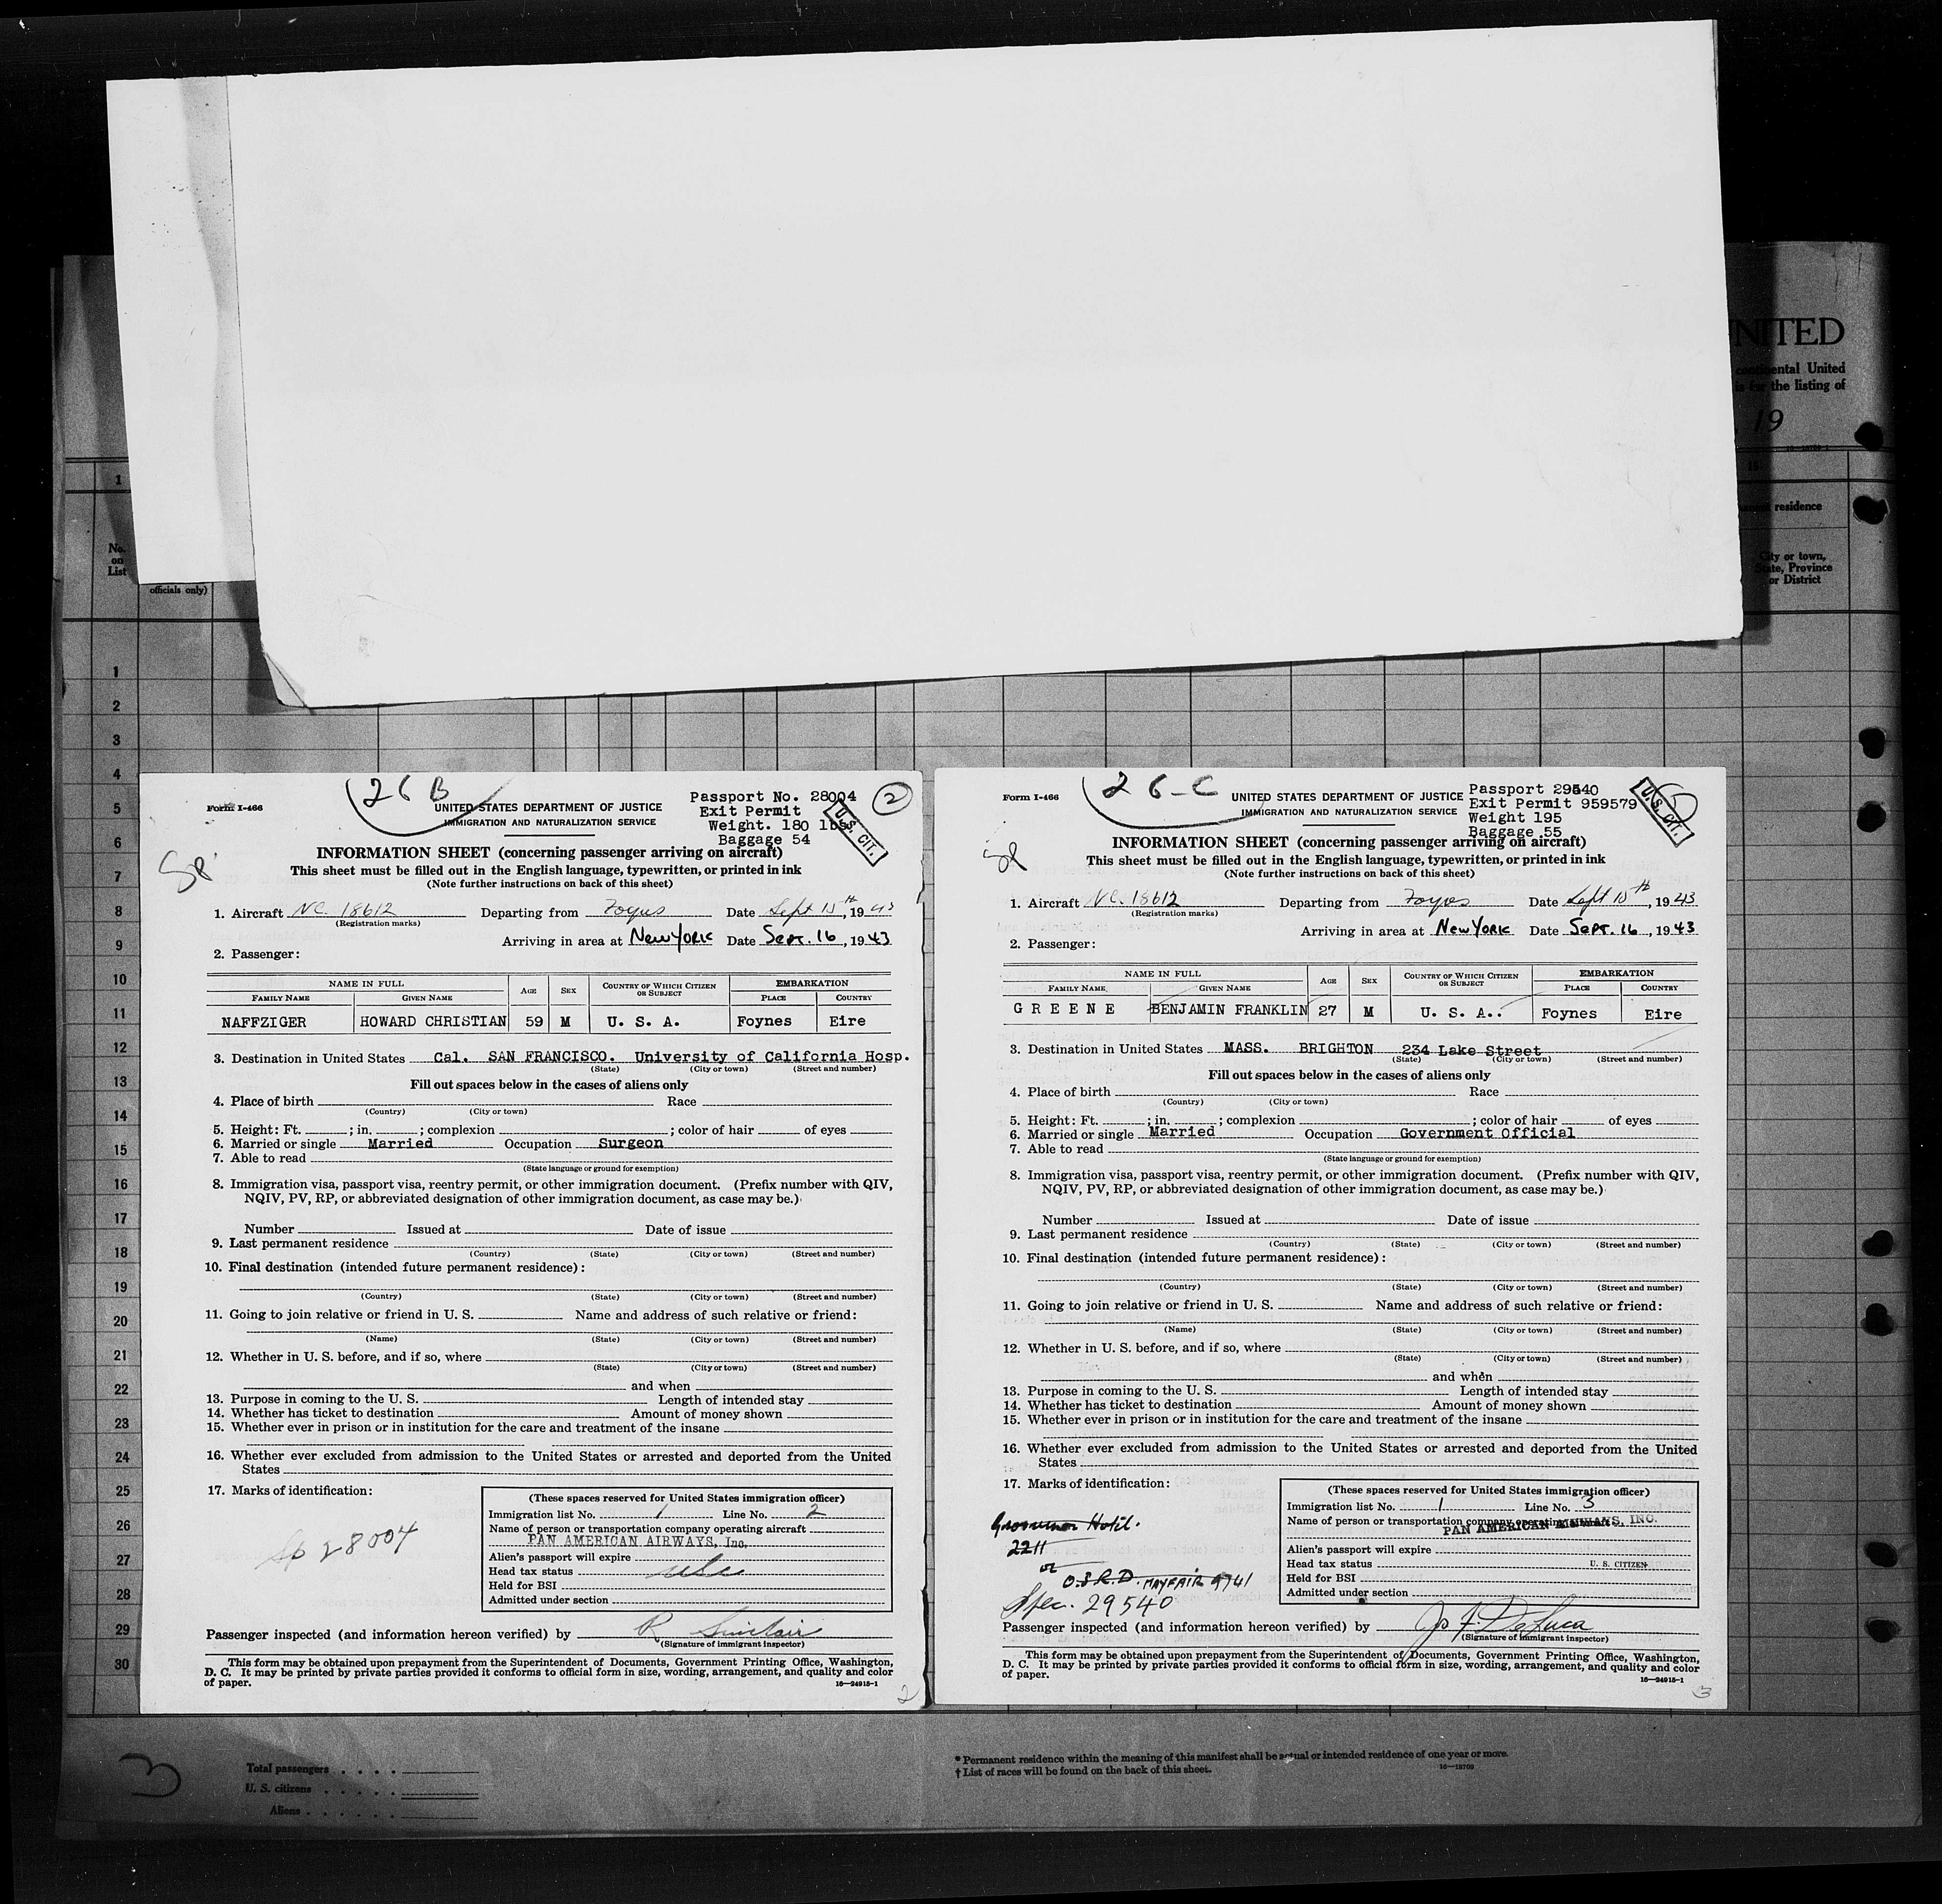 NITED
continental United
is for the listing of
, 19
15
residence
City or town,
State, Province
or District
1
No.
on
List
officials only)
1
2
3
4
5
6
7
8
9
10
11
12
13
14
15
16
17
18
19
20
21
22
23
24
25
26
27
28
29
30
26 B
2
Form I-466
UNITED STATES DEPARTMENT OF JUSTICE
IMMIGRATION AND NATURALIZATION SERVICE
Passport No. 28004
Exit Permit
Weight. 180 lbs.
Baggage 54
U.S. CIT.
INFORMATION SHEET (concerning passenger arriving on aircraft)
This sheet must be filled out in the English language, typewritten, or printed in ink
(Note further instructions on back of this sheet)
1. Aircraft NC. 18612 Departing from Foynes Date Sept 15th, 1943
(Registration marks)
Arriving in area at New York Date Sept. 16, 1943
2. Passenger:
NAME IN FULL AGE SEX COUNTRY OF WHICH CITIZEN OR SUBJECT EMBARKATION
FAMILY NAME GIVEN NAME PLACE COUNTRY
NAFFZIGER HOWARD CHRISTIAN 59 M U. S. A. Foynes Eire
3. Destination in United States Cal. SAN FRANCISCO. University of California Hosp.
(State) (City or town) (Street and number)
Fill out spaces below in the cases of aliens only
4. Place of birth Race
(Country) (City or town)
5. Height: Ft. ; in. ; complexion ; color of hair of eyes
6. Married or single Married Occupation Surgeon
7. Able to read
(State language or ground for exemption)
8. Immigration visa, passport visa, reentry permit, or other immigration document. (Prefix number with QIV,
NQIV, PV, RP, or abbreviated designation of other immigration document, as case may be.)
Number Issued at Date of issue
9. Last permanent residence
(Country) (State) (City or town) (Street and number)
10. Final destination (intended future permanent residence):
(Country) (State) (City or town) (Street and number)
11. Going to join relative or friend in U. S. Name and address of such relative or friend:
(Name) (State) (City or town) (Street and number)
12. Whether in U. S. before, and if so, where
(State) (City or town) (Street and number)
and when
13. Purpose in coming to the U. S. Length of intended stay
14. Whether has ticket to destination Amount of money shown
15. Whether ever in prison or in institution for the care and treatment of the insane
16. Whether ever excluded from admission to the United States or arrested and deported from the United
States
17. Marks of identification:
Sp 28004
(These spaces reserved for United States immigration officer)
Immigration list No. 1 Line No. 2
Name of person or transportation company operating aircraft
PAN AMERICAN AIRWAYS, Inc.
Alien's passport will expire
Head tax status usc
Held for BSI
Admitted under section
Passenger inspected (and information hereon verified) by R Sinclair
(Signature of immigrant inspector)
This form may be obtained upon prepayment from the Superintendent of Documents, Government Printing Office, Washington,
D. C. It may be printed by private parties provided it conforms to official form in size, wording, arrangement, and quality and color
of paper.
16—24915-1
2
26-C
Form I-466
UNITED STATES DEPARTMENT OF JUSTICE
IMMIGRATION AND NATURALIZATION SERVICE
Passport 29540
Exit Permit 959579
Weight 195
Baggage 55
U.S. CIT.
INFORMATION SHEET (concerning passenger arriving on aircraft)
This sheet must be filled out in the English language, typewritten, or printed in ink
(Note further instructions on back of this sheet)
1. Aircraft NC. 18612 Departing from Foynes Date Sept 15th, 1943
(Registration marks)
Arriving in area at New York Date Sept. 16, 1943
2. Passenger:
NAME IN FULL AGE SEX COUNTRY OF WHICH CITIZEN OR SUBJECT EMBARKATION
FAMILY NAME GIVEN NAME PLACE COUNTRY
G R E E N E BENJAMIN FRANKLIN 27 M U. S. A.. Foynes Eire
3. Destination in United States MASS. BRIGHTON 234 Lake Street
(State) (City or town) (Street and number)
Fill out spaces below in the cases of aliens only
4. Place of birth Race
(Country) (City or town)
5. Height: Ft. ; in. ; complexion ; color of hair of eyes
6. Married or single Married Occupation Government Official
7. Able to read
(State language or ground for exemption)
8. Immigration visa, passport visa, reentry permit, or other immigration document. (Prefix number with QIV,
NQIV, PV, RP, or abbreviated designation of other immigration document, as case may be.)
Number Issued at Date of issue
9. Last permanent residence
(Country) (State) (City or town) (Street and number)
10. Final destination (intended future permanent residence):
(Country) (State) (City or town) (Street and number)
11. Going to join relative or friend in U. S. Name and address of such relative or friend:
(Name) (State) (City or town) (Street and number)
12. Whether in U. S. before, and if so, where
(State) (City or town) (Street and number)
and when
13. Purpose in coming to the U. S. Length of intended stay
14. Whether has ticket to destination Amount of money shown
15. Whether ever in prison or in institution for the care and treatment of the insane
16. Whether ever excluded from admission to the United States or arrested and deported from the United
States
17. Marks of identification:
Grosvenor Hotel.
2211
or
O.S.R.D. MAYFAIR 9741
Spec. 29540
(These spaces reserved for United States immigration officer)
Immigration list No. 1 Line No. 3
Name of person or transportation company operating aircraft
PAN AMERICAN AIRWAYS, INC.
Alien's passport will expire
Head tax status U. S. CITIZEN
Held for BSI
Admitted under section
Passenger inspected (and information hereon verified) by Jos F. DeLuca
(Signature of immigrant inspector)
This form may be obtained upon prepayment from the Superintendent of Documents, Government Printing Office, Washington,
D. C. It may be printed by private parties provided it conforms to official form in size, wording, arrangement, and quality and color
of paper.
16—24915-1
3
3
Total passengers . . . .
U. S. citizens . . . . .
Aliens . . . . . .
* Permanent residence within the meaning of this manifest shall be actual or intended residence of one year or more.
† List of races will be found on the back of this sheet.
16—18709